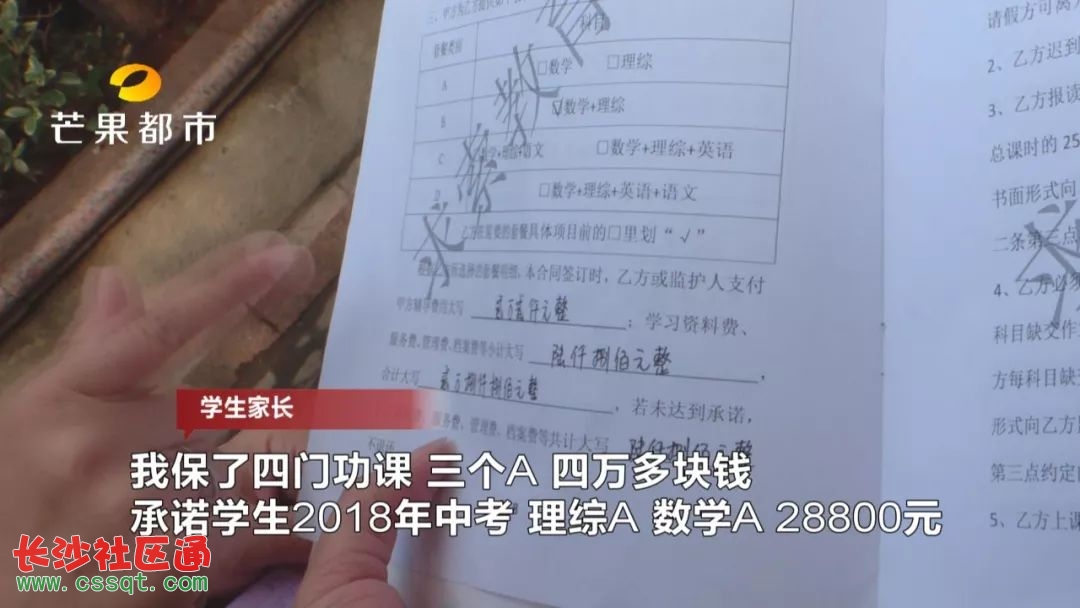 三、甲方为乙方提供如下
科目
套餐类别
A
□数学 □理综
B
☑数学+理综
C
数学+理综+语文 □数学+理综+英语
D
□数学+理综+英语+语文
乙方在需要的套餐具体项目前的□里划“√”
根据乙方所选择的套餐明细,本合同签订时,乙方或监护人支付
甲方辅导费用大写 贰万贰仟元整 ;学习资料费、
服务费、管理费、档案费等小计大写 陆仟捌佰元整 ,
合计大写 贰万捌仟捌佰元整 ,若未达到承诺,
不退还 服务费、管理费、档案费等共计大写 陆仟捌佰元整
请假方可离
2、乙方迟到
3、乙方报读
总课时的 25
书面形式向
二条第三点
4、乙方必须
科目缺交作
方每科目缺
形式向乙方
第三点约定
5、乙方上课
芒果都市
学生家长
我保了四门功课 三个A 四万多块钱
承诺学生2018年中考 理综A 数学A 28800元
长沙社区通
www.cssqt.com